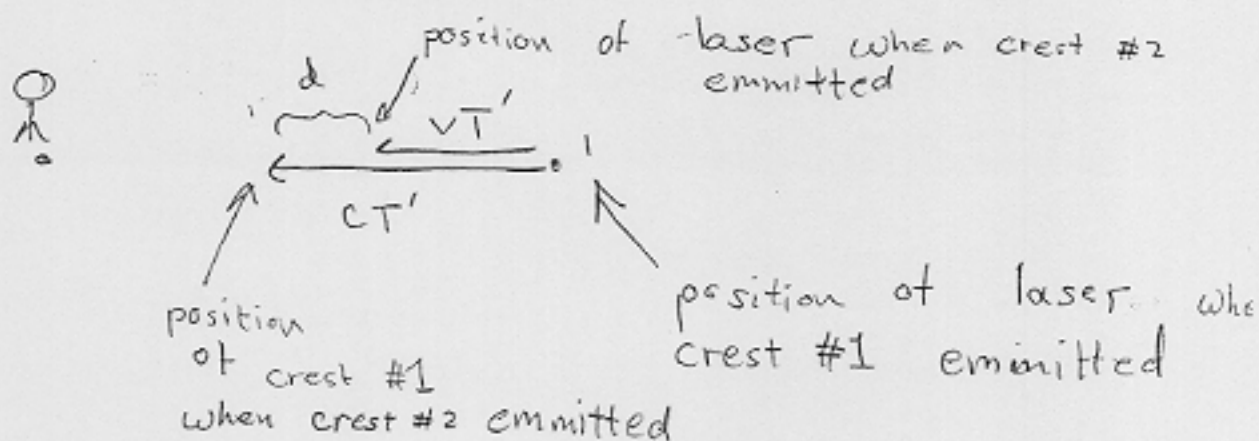 position of laser when crest #2
emmitted
d
VT'
1
CT'
position of laser whe
crest #1 emmitted
position
of crest #1
when crest #2 emmitted